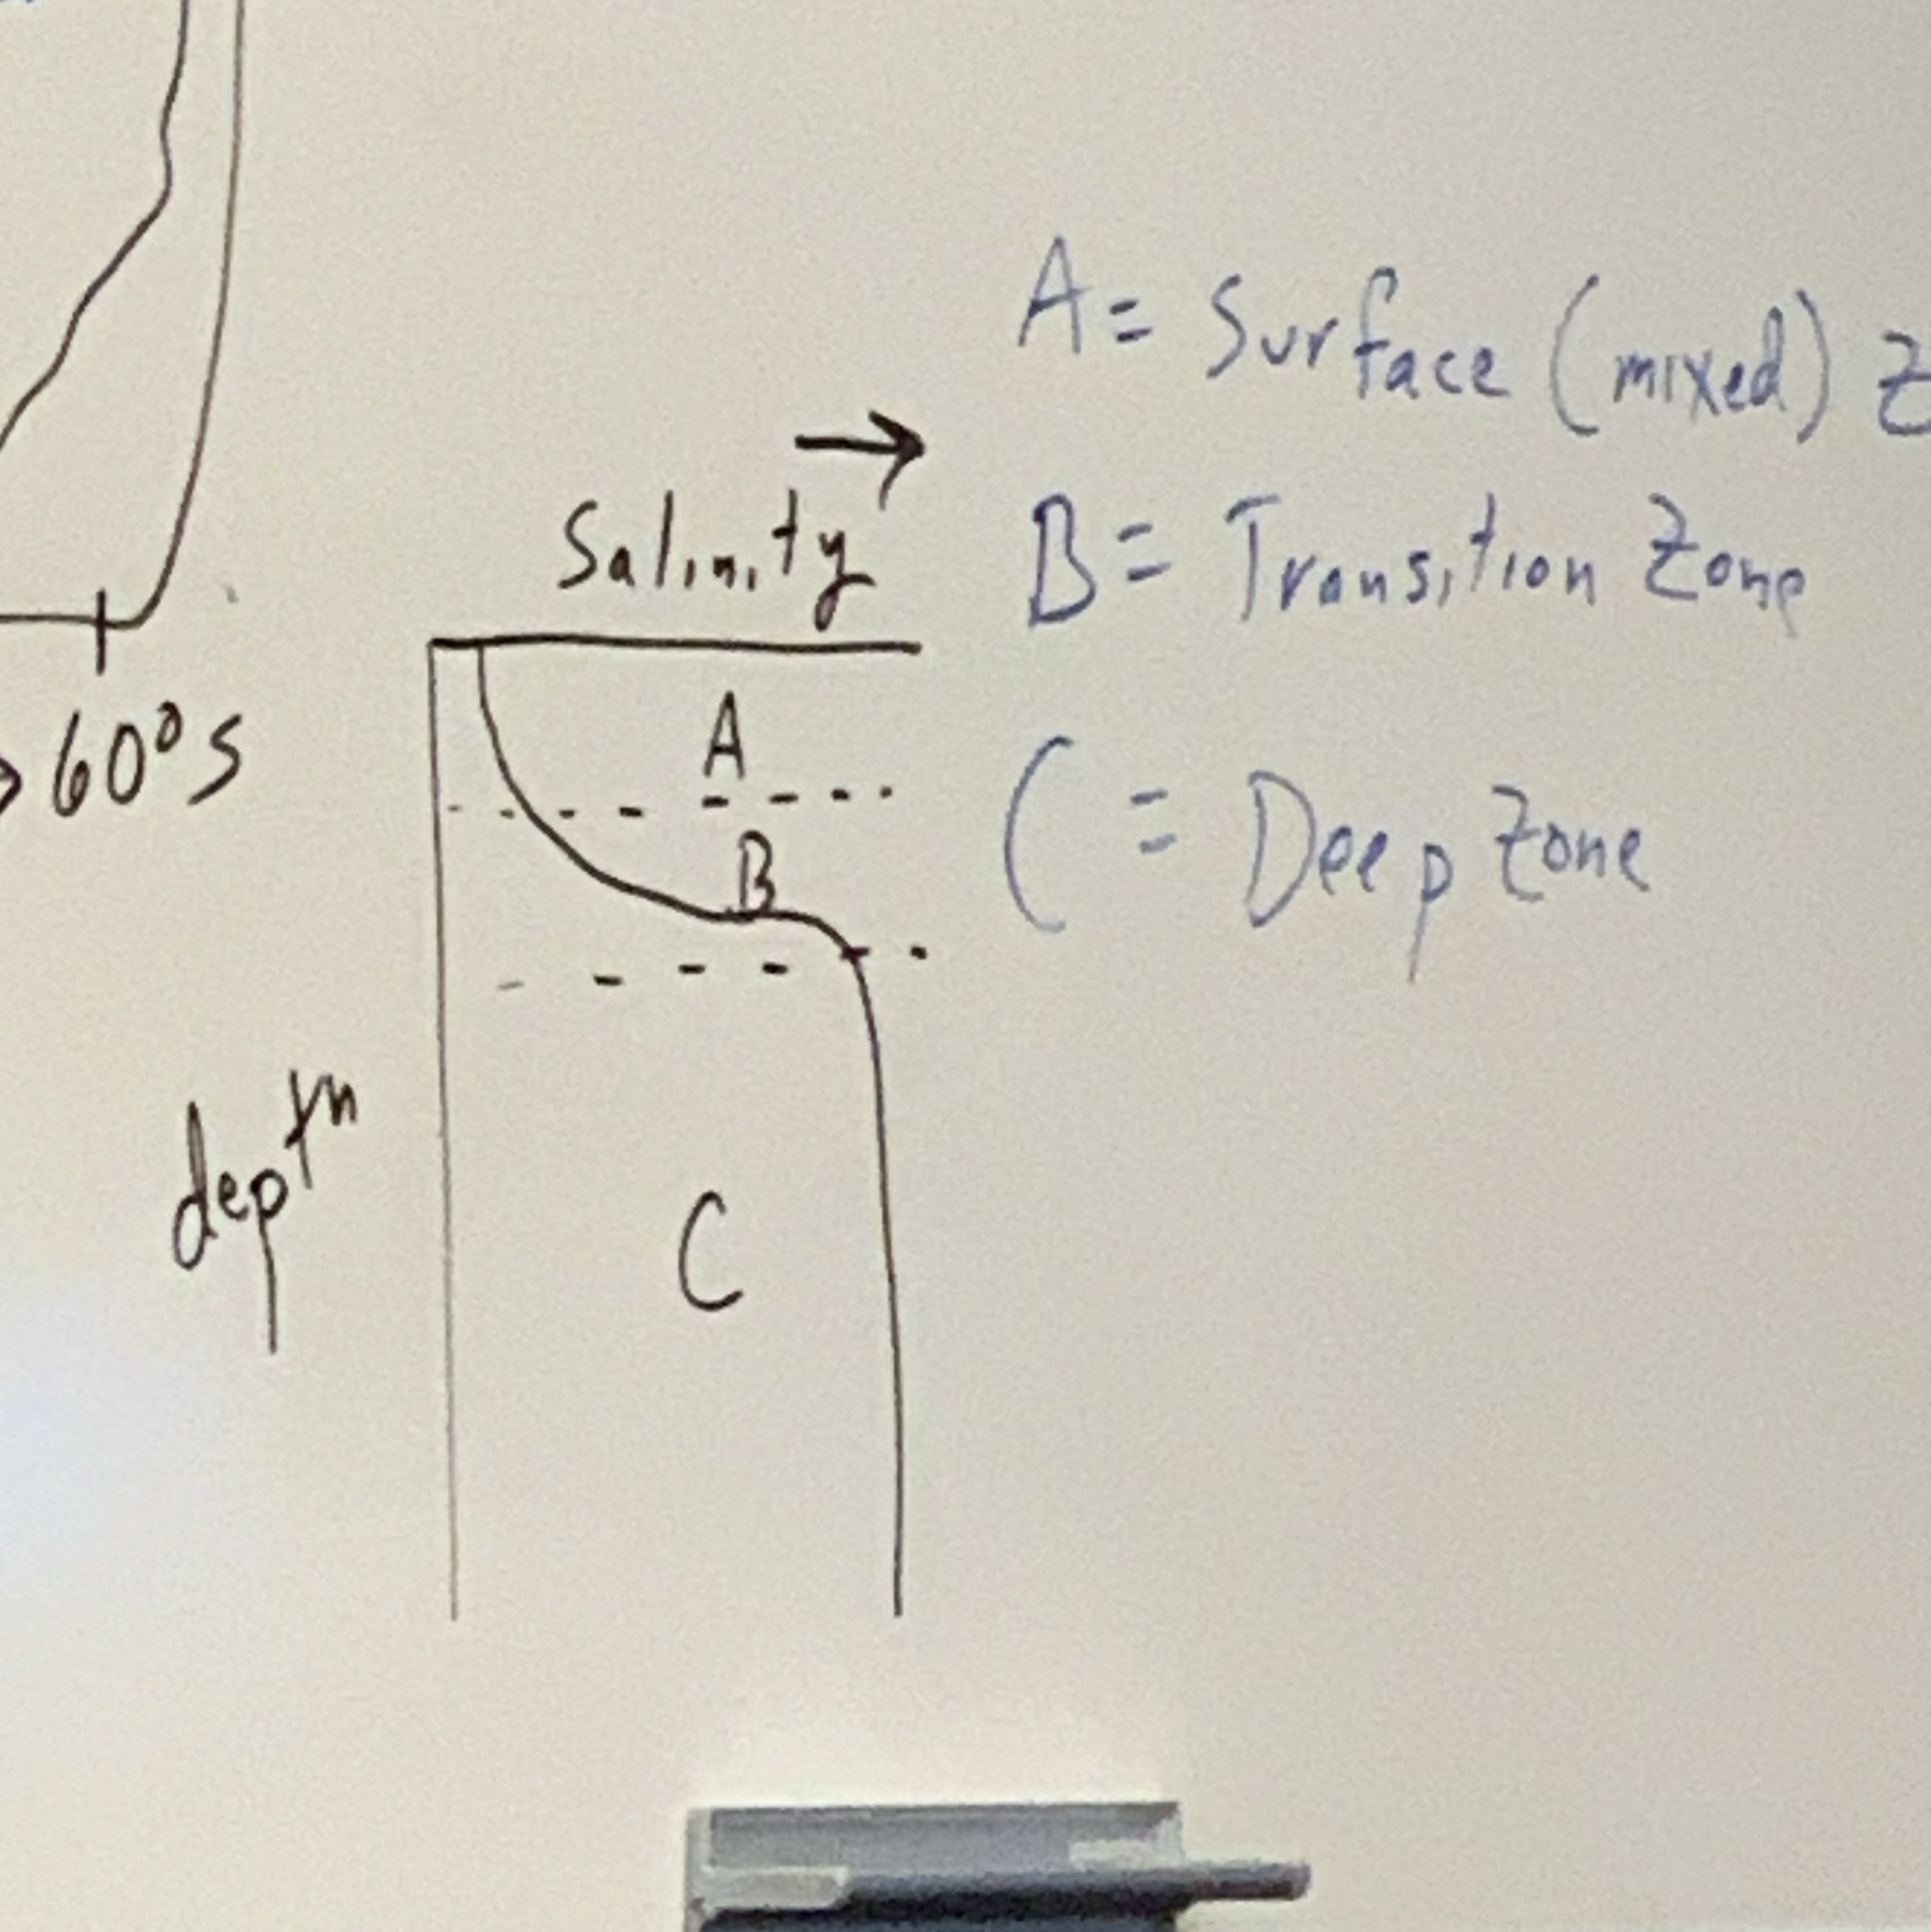 A = Surface (mixed) Z
Salinity →
B = Transition Zone
60°S
A
B
C = Deep Zone
depth
C